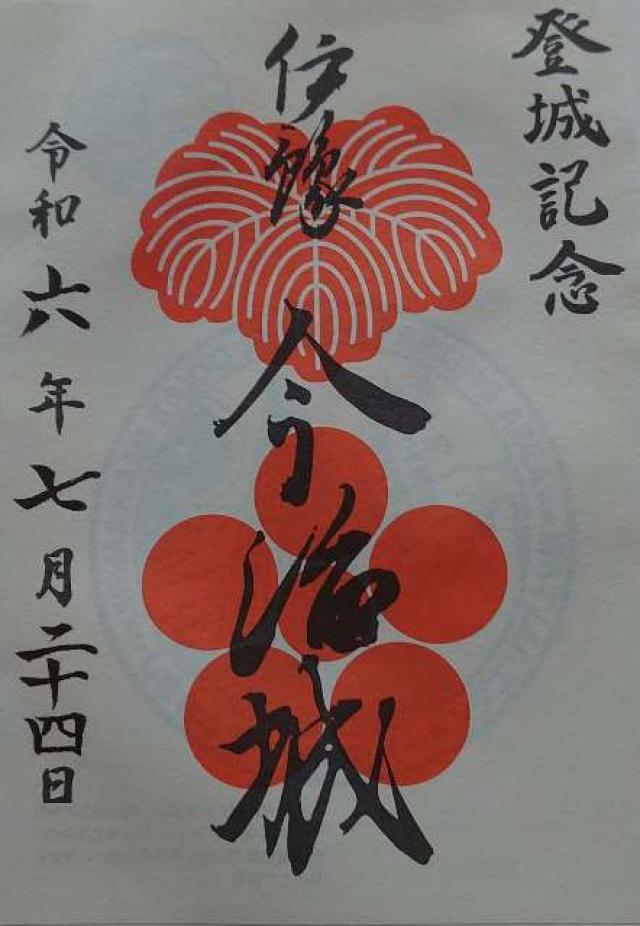 登城記念
伊豫
今治城
令和六年七月二十四日